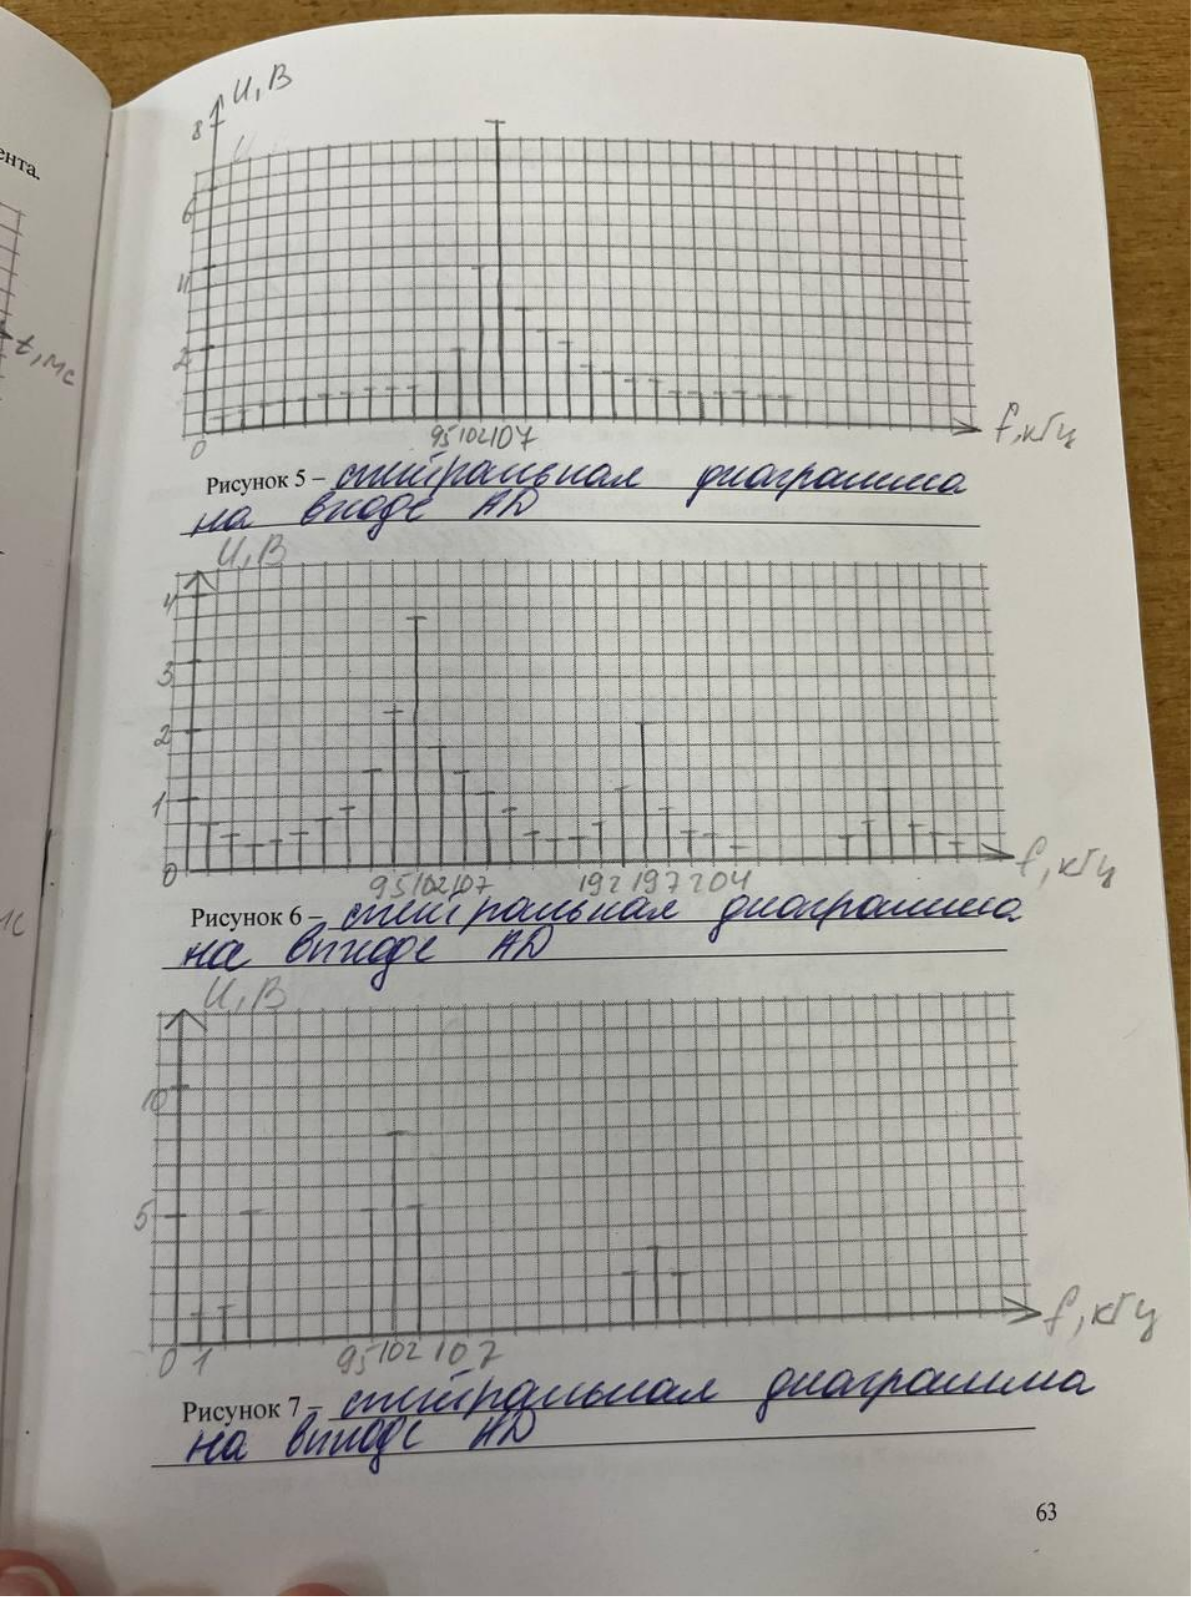 ента.
t, мс
U, В
8
6
4
2
0
95 102 107
f, кГц
Рисунок 5 – спектральная диаграмма
на входе АД
U, В
4
3
2
1
0
95 102 107 192 197 204
f, кГц
Рисунок 6 – спектральная диаграмма
на выходе АД
U, В
10
5
0 1 95 102 107
f, кГц
Рисунок 7 – спектральная диаграмма
на выходе АД
63